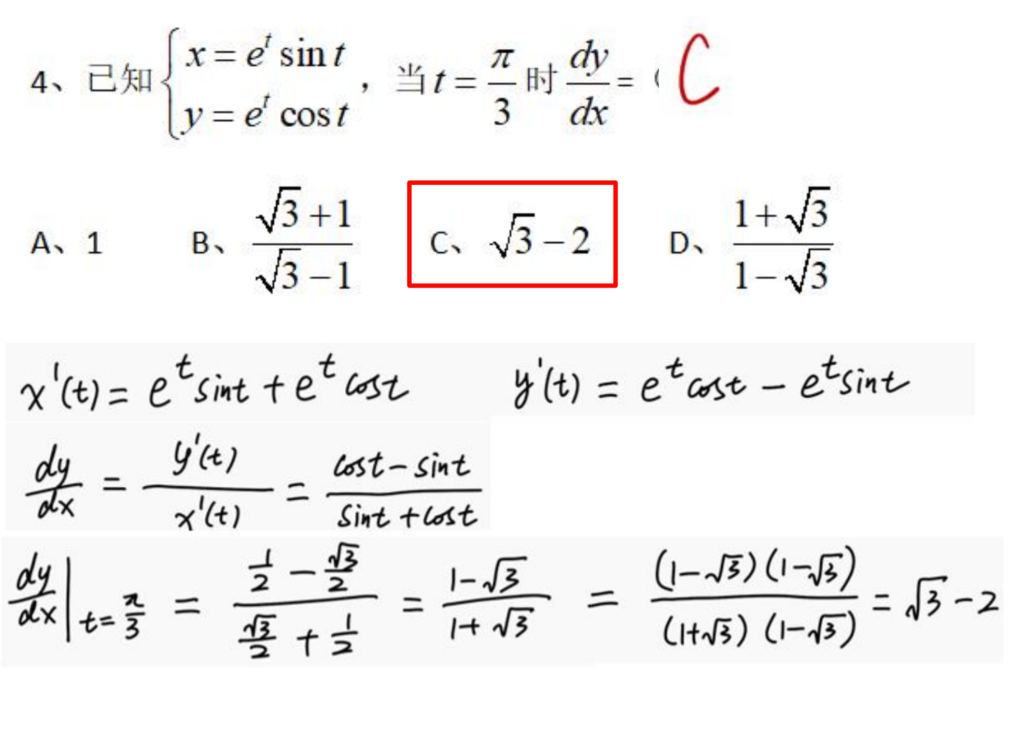 4、已知 { x = e^t sin t, y = e^t cos t ，当 t = π/3 时 dy/dx = （ C
A、1 B、(√3+1)/(√3−1) C、√3−2 D、(1+√3)/(1−√3)
x'(t) = e^t sint + e^t cost y'(t) = e^t cost − e^t sint
dy/dx = y'(t)/x'(t) = (cost − sint)/(sint + cost)
dy/dx |t=π/3 = (1/2 − √3/2)/(√3/2 + 1/2) = (1−√3)/(1+√3) = (1−√3)(1−√3)/(1+√3)(1−√3) = √3−2